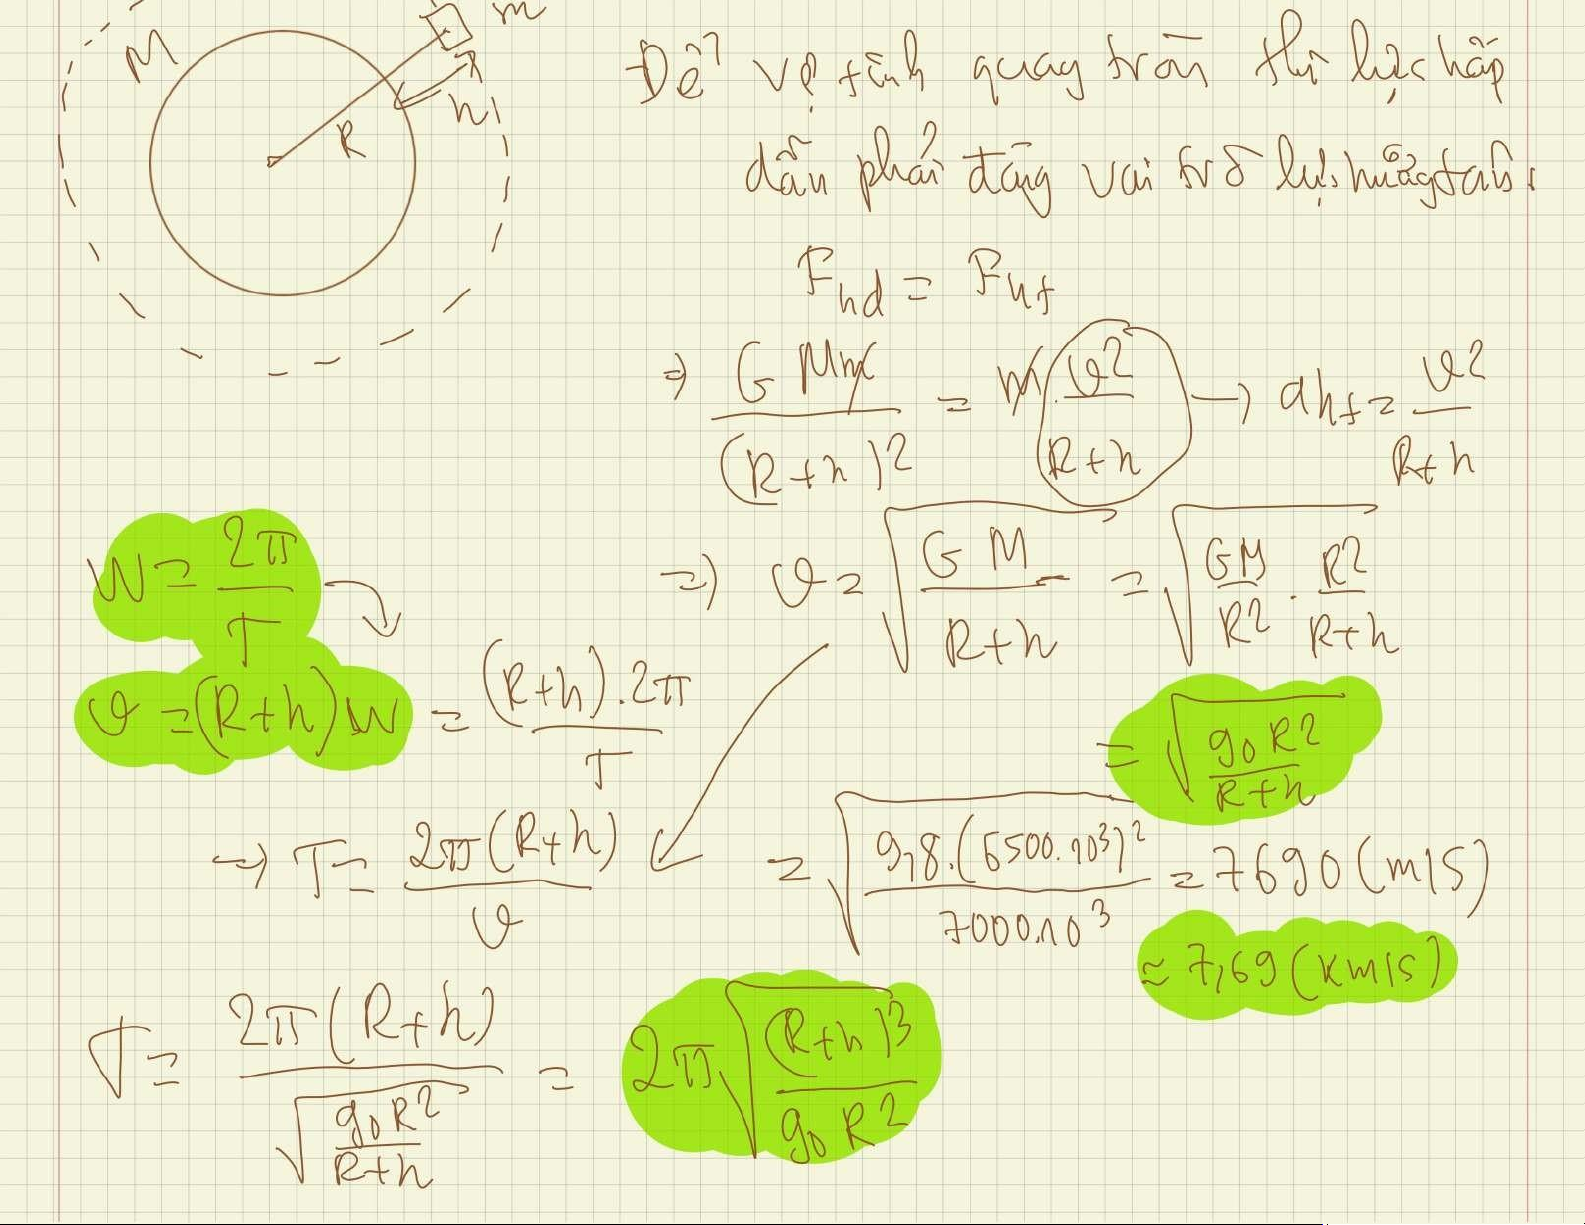 m
M
h
R
Để vệ tinh quay tròn thì lực hấp
dẫn phải đóng vai trò lực hướng tâm.
F_hd = F_ht
=> G Mm / (R+h)^2 = m . v^2 / (R+h) → a_ht = v^2 / (R+h)
=> v = √(GM / (R+h)) = √(GM/R^2 . R^2/(R+h))
= √(g_0 R^2 / (R+h))
= √(9,8.(6500.10^3)^2 / 7000.10^3) = 7690 (m/s)
≈ 7,69 (km/s)
W = 2π / T
v = (R+h)W = (R+h).2π / T
=> T = 2π(R+h) / v
T = 2π(R+h) / √(g_0 R^2 / (R+h)) = 2π √((R+h)^3 / g_0 R^2)